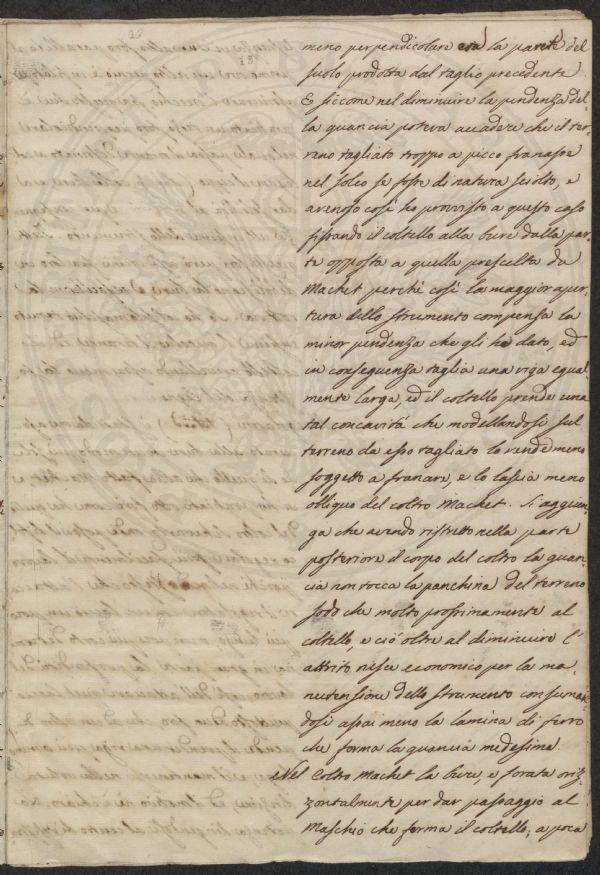 meno perpendicolare era la parete del
suolo prodotta dal taglio precedente.
E siccome nel diminuire la pendenza del-
la guancia poteva accadere che il ter-
reno tagliato troppo a picco franasse
nel solco se fosse di natura sciolto, e
arenoso così ho provvisto a questo caso
fissando il coltello alla bure dalla par-
te opposta a quella prescelta da
Machet perché così la maggior aper-
tura dello strumento compensa la
minor pendenza che gli ho dato, ed
in conseguenza taglia una riga egual-
mente larga, ed il coltello prende una
tal concavità che modellandosi sul
terreno da esso tagliato lo rende meno
soggetto a franare, e lo lascia meno
obliquo del coltro Machet. Si aggiun-
ga che avendo ristretto nella parte
posteriore il corpo del coltro la guan-
cia non tocca la panchina del terreno
sodo che molto prossimamente al
coltello, e ciò oltre al diminuire l'
attrito riesce economico per la ma-
nutensione dello strumento consuman-
dosi assai meno la lamina di ferro
che forma la guancia medesima.
Nel Coltro Machet la bure, e forata oriz-
zontalmente per dar passaggio al
Maschio che forma il coltello; a poca